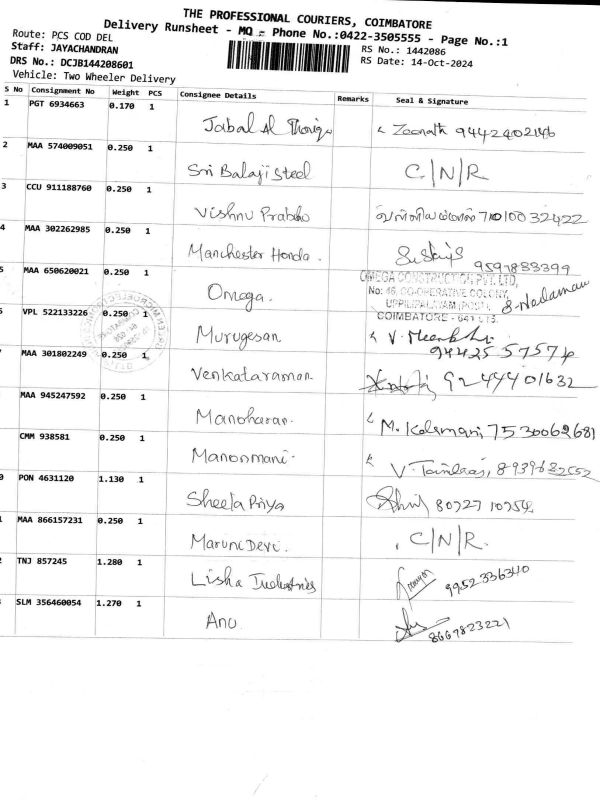 THE PROFESSIONAL COURIERS, COIMBATORE
Delivery Runsheet - MQ - Phone No.:0422-3505555 - Page No.:1
Route: PCS COD DEL
Staff: JAYACHANDRAN
DRS No.: DCJB144208601
Vehicle: Two Wheeler Delivery
RS No.: 1442086
RS Date: 14-Oct-2024
S No Consignment No Weight PCS Consignee Details Remarks Seal & Signature
1 PGT 6934663 0.170 1 Jabal Al 9442402146
2 MAA 574009051 0.250 1 Sri Balaji Steel C/N/R
3 CCU 911188760 0.250 1 Vishnu Prabho 7101003 2422
4 MAA 302262985 0.250 1 Manchester Honda. 9597833399
5 MAA 650620021 0.250 1 Omega.
OMEGA CONSTRUCTION PVT. LTD,
No: 46, CO-OPERATIVE COLONY,
UPPILIPALAYAM (POST),
COIMBATORE - 641 015.
VPL 522133226 0.250 1 Murugesan 94425 57574
MAA 301802249 0.250 1 Venkataraman 9244401632
MAA 945247592 0.250 1 Manoharan. M. Kalamani, 7530062681
CMM 938581 0.250 1 Manonmani. 8939632652
PON 4631120 1.130 1 Sheela Priya 80727 10754
MAA 866157231 0.250 1 Maruni Devi. C/N/R.
TNJ 857245 1.280 1 Lisha Industries 9952336340
SLM 356460054 1.270 1 Anu 8667823221